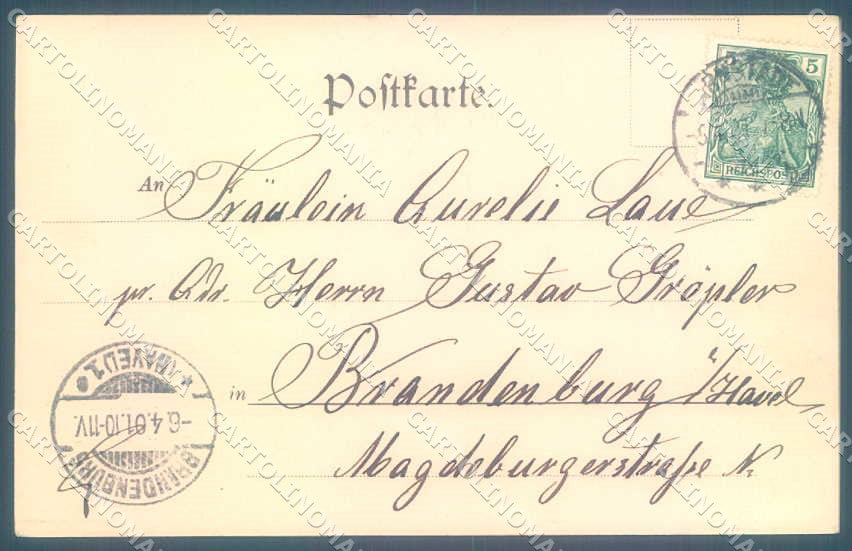 Postkarte.
5
REICHSPOST
An Fräulein Aurelie Laue
pr. Adr. Herrn Gustav Gröpler
in Brandenburg a/Havel,
Magdeburgerstraße N.
BRANDENBURG
-6.4.01.10-11V.
* (HAVEL) 1.
CARTOLINOMANIA